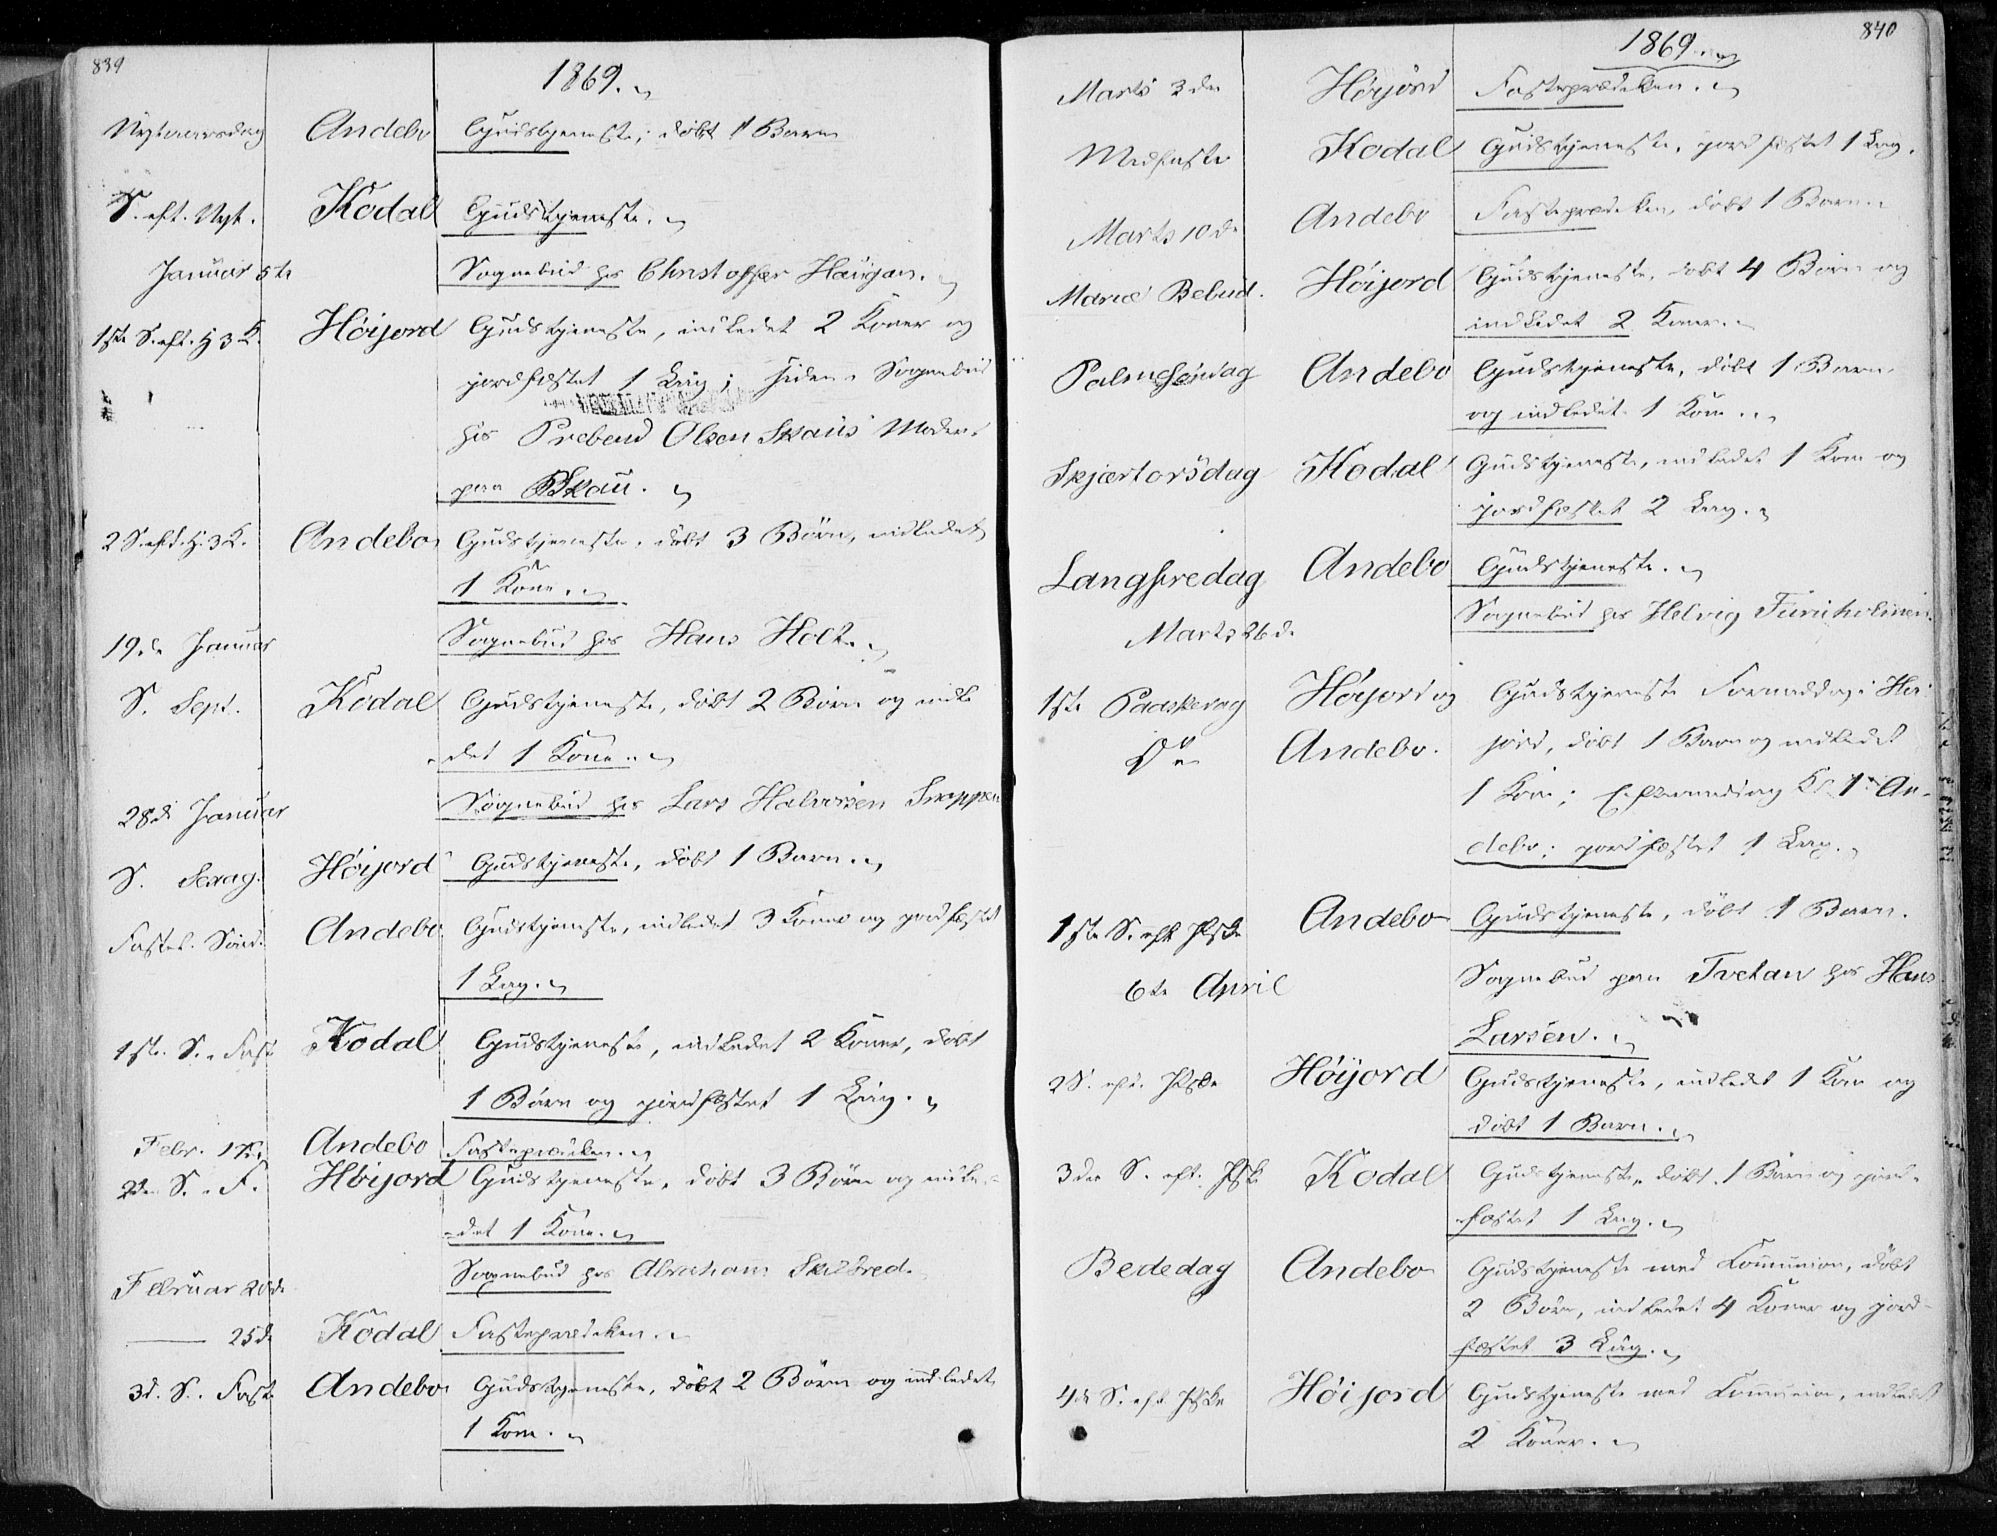 839
1869.
Nytaarsdag Andebo Gudstjeneste; döbt 1 Barn
S. eft. Nyt. Kodal Gudstjeneste.
Januar 5te Sognebud hos Christoffer Haugan.
1ste S. eft. H 3 K. Höijord Gudstjeneste, indledet 2 Koner og
jordfæstet 1 Liig; siden Sognebud
hos Prebend Olsen Skaus Moder
paa Skau.
2 S. eft. H. 3 K. Andebo Gudstjeneste, döbt 3 Börn, indledet
1 Kone.
19de Januar Sognebud hos Hans Holt.
S. Sept. Kodal Gudstjeneste, döbt 2 Börn og indle
det 1 Kone.
28de Januar Sognebud hos Lars Halvorsen Snappen
S. Sexag. Höijord Gudstjeneste, döbt 1 Barn.
Fastel. Sönd. Andebo Gudstjeneste, indledet 3 Koner og jordfæstet
1 Liig.
1ste S. i Faste Kodal Gudstjeneste, indledet 2 Koner, döbt
1 Barn og jordfæstet 1 Liig.
Febr. 17de Andebo Fasteprædiken.
2den S. i F. Höijord Gudstjeneste, döbt 3 Börn og indle-
det 1 Kone.
Februar 20de Sognebud hos Abraham Skilbred.
25de Kodal Fasteprædiken.
3d. S. i Faste Andebo Gudstjeneste, döbt 2 Börn og indledet
1 Kone.
840
1869.
Marts 3de Höijord Fasteprædiken.
Midfaste Kodal Gudstjeneste, jordfæstet 1 Liig.
Marts 10de Andebo Fasteprædiken, döbt 1 Barn.
Mariæ Bebud. Höijord Gudstjeneste, döbt 4 Börn og
indledet 2 Koner.
Palmesöndag Andebo Gudstjeneste, döbt 1 Barn
og indledet 1 Kone.
Skjærtorsdag Kodal Gudstjeneste, indledet 1 Kone og
jordfæstet 2 Liig.
Langfredag Andebo Gudstjeneste.
Marts 26de Sognebud hos Helvig
1ste Paaskedag Höijord og Gudstjeneste Formiddag i Höi-
Do Andebo. jord, döbt 1 Barn og indledet
1 Kone; Eftermiddag Kl. 1 i An-
debo; jordfæstet 1 Liig.
1ste S. eft Pske Andebo Gudstjeneste, döbt 1 Barn.
6te April Sognebud paa Tvetan hos Hans
Larsen.
2 S. eft. Pske Höijord Gudstjeneste, indledet 1 Kone og
döbt 1 Barn.
3die S. eft. Pske Kodal Gudstjeneste, döbt 1 Barn og jord-
fæstet 1 Liig.
Bededag Andebo Gudstjeneste med Communion, döbt
2 Börn, indledet 4 Koner og jord-
fæstet 3 Liig.
4de S. eft Pske Höijord Gudstjeneste med Communion, indledet
2 Koner.